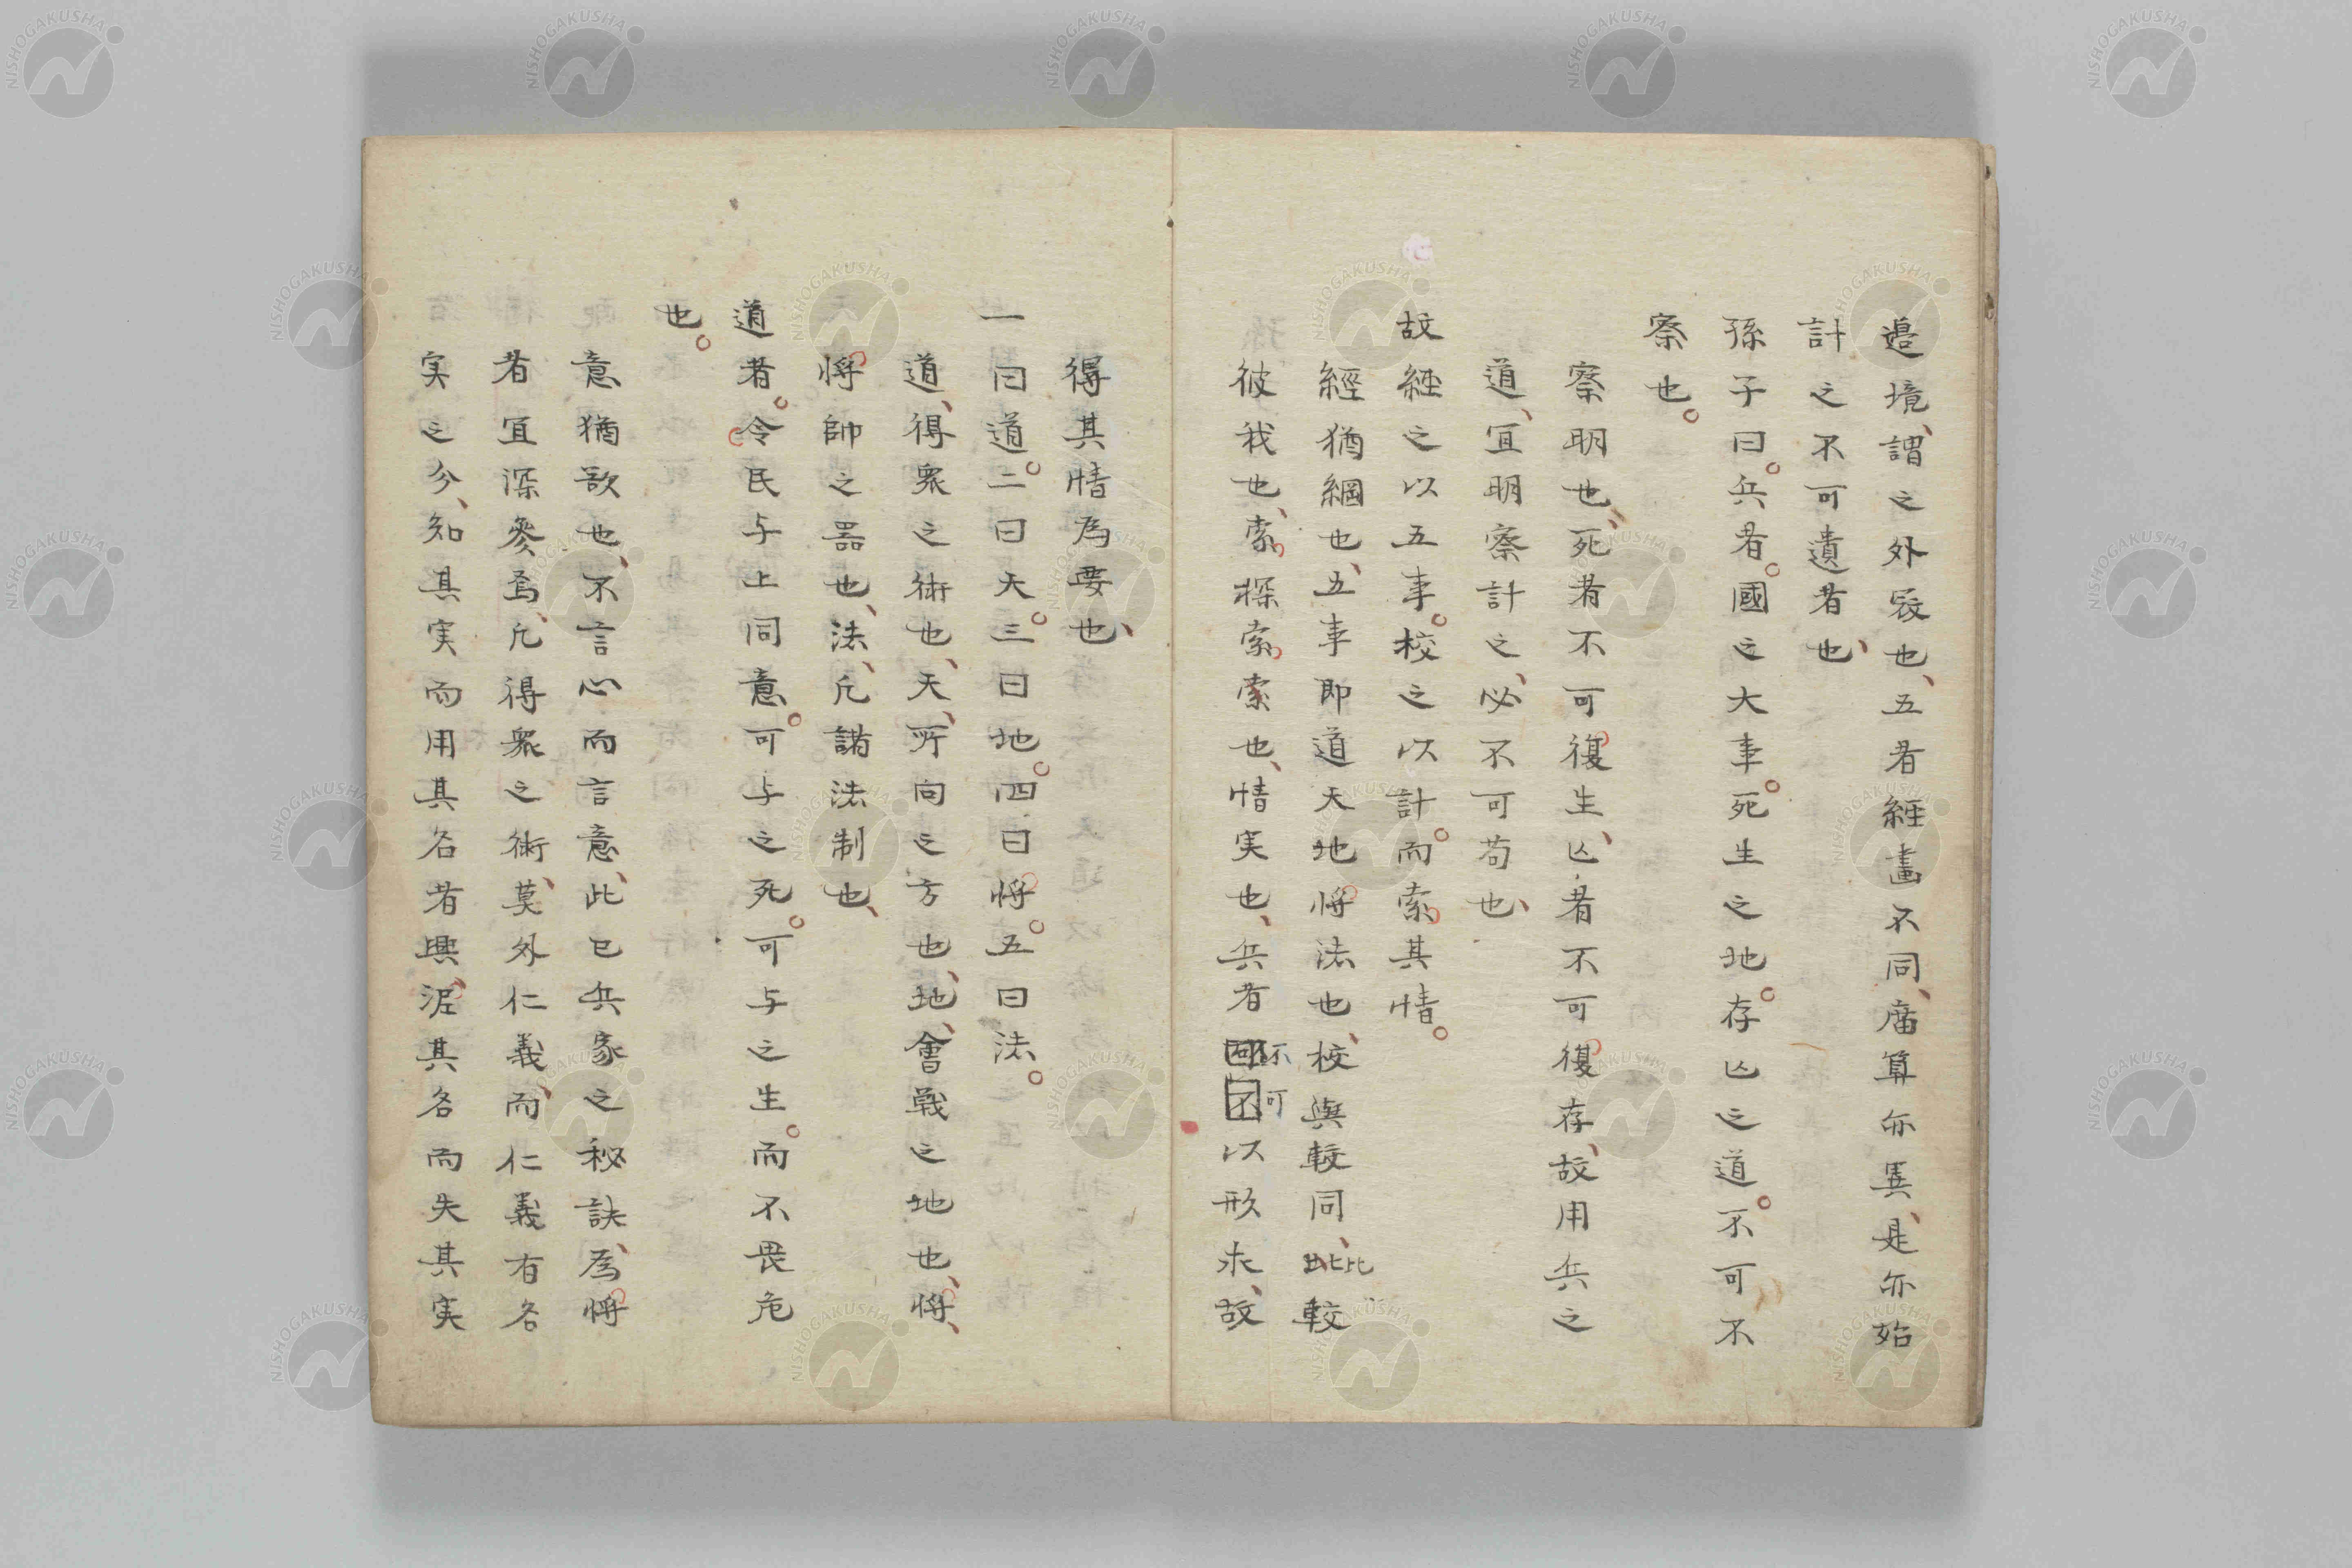 邉境、謂之外㕑也、五者經畫不同、庿算亦異、是亦始
計之不可遺者也、
孫子曰。兵者。國之大事。死生之地。存亾之道。不可不
察也。
察明也、死者不可復生、亾者不可復存、故用兵之
道、宜明察計之、必不可苟也、
故經之以五事。校之以計。而索其情。
經猶綱也、五事即道天地將法也、校與較同、比較
彼我也、索、探索索也、情实也、兵者不可以形求、故
得其情為要也、
一曰道。二曰天。三曰地。四曰將。五曰法。
道、得衆之術也、天、所向之方也、地、會戰之地也、將、
將帥之器也、法、凢諸法制也、
道者。令民与上同意。可与之死。可与之生。而不畏危
也。
意猶欲也、不言心而言意、此已兵家之秘訣、為將
者宜深參焉、凢得衆之術、莫外仁義、而仁義有名
实之分、知其实而用其名者興、泥其名而失其实
NISHOGAKUSHA